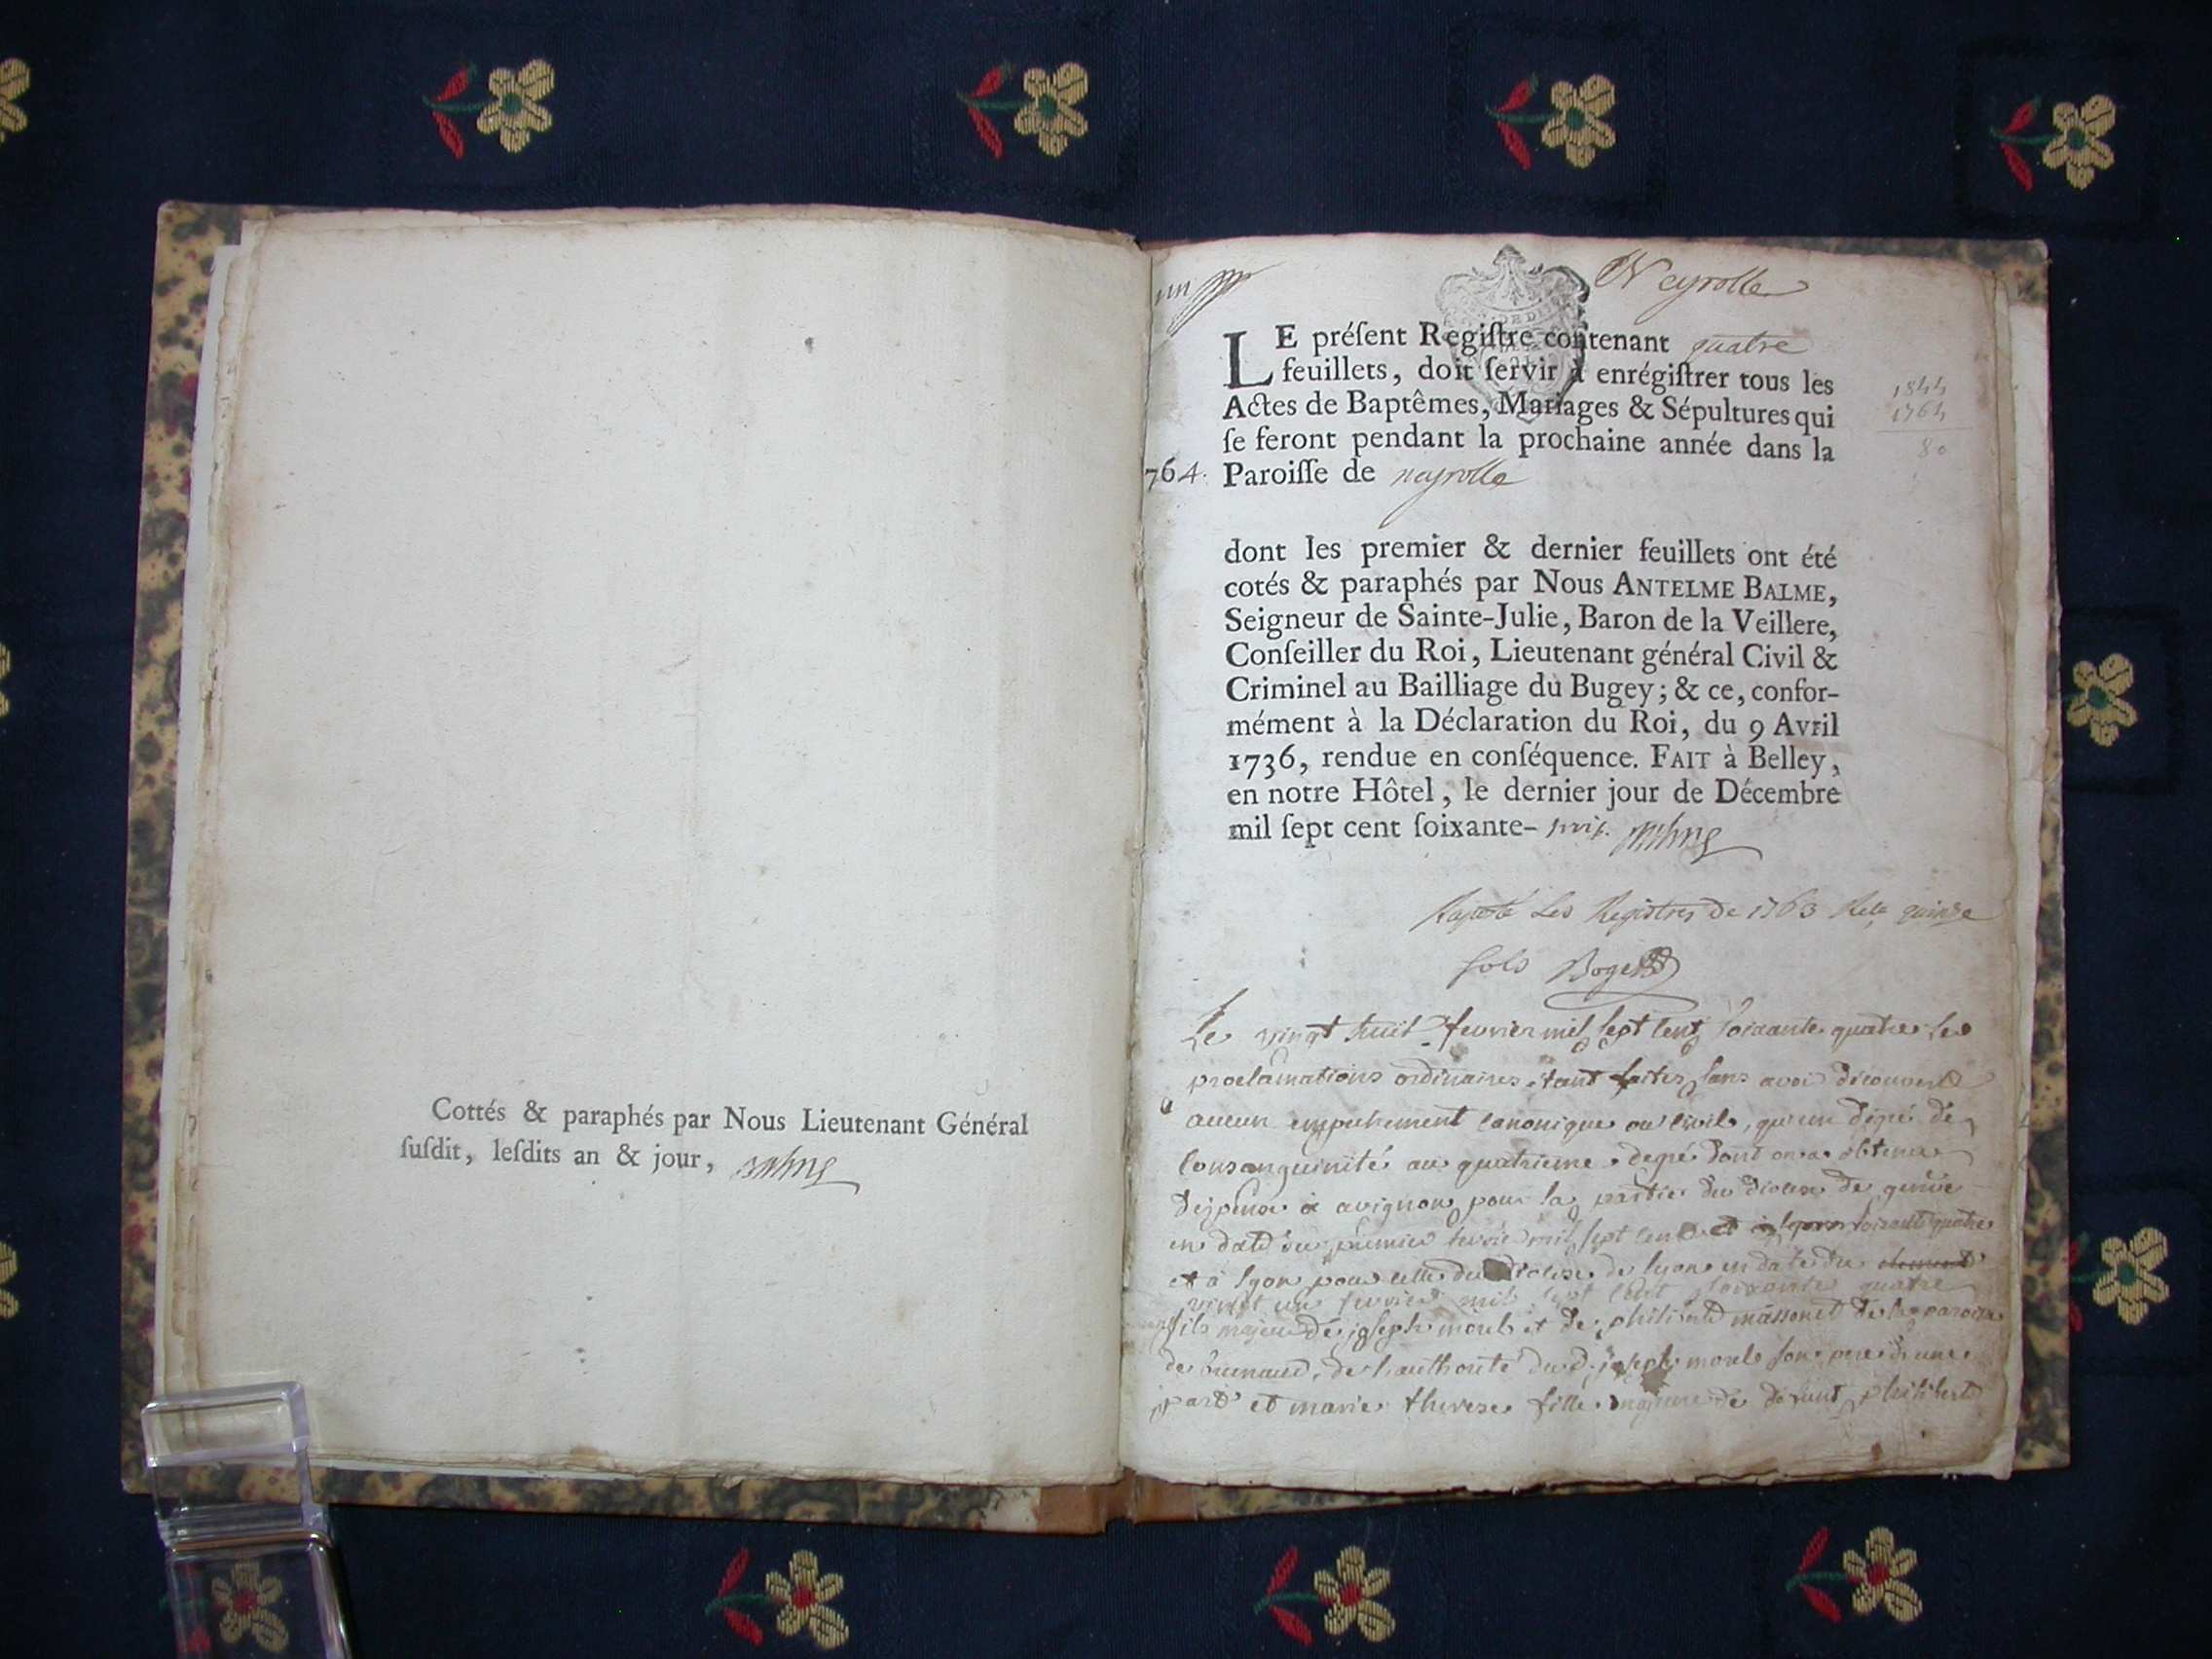 Cottés & paraphés par Nous Lieutenant Général
ſuſdit, leſdits an & jour,
un
Neyrolle
LE préſent Regiſtre contenant quatre
feuillets, doit ſervir à enrégiſtrer tous les
Actes de Baptêmes, Mariages & Sépultures qui
ſe feront pendant la prochaine année dans la
764. Paroiſſe de neyrolle
1844
1764
80
dont les premier & dernier feuillets ont été
cotés & paraphés par Nous ANTELME BALME,
Seigneur de Sainte-Julie, Baron de la Veillere,
Conſeiller du Roi, Lieutenant général Civil &
Criminel au Bailliage du Bugey; & ce, confor-
mément à la Déclaration du Roi, du 9 Avril
1736, rendue en conſéquence. FAIT à Belley,
en notre Hôtel, le dernier jour de Décembre
mil ſept cent ſoixante- trois.
Les Registres de 1763 quinze
sols Roger
Le vingt huit fevrier mil sept cent soixante quatre les
proclamations ordinaires étant faites sans avoir découvert
aucun empechement canonique ou civil, qu'un degré de
consanguinité au quatrieme degré dont on a obtenu
dispense à avignon pour la partie du diocese de
en date du premier mil sept cent soixante quatre
et à lyon pour celle du diocese de lyon en date du
vingt un fevrier mil sept cent soixante quatre
fils majeur de joseph morel et de philiberte massonet de la paroisse
de de l'authorité du d. joseph morel son pere d'une
part et marie therese fille majeure de defunt philibert